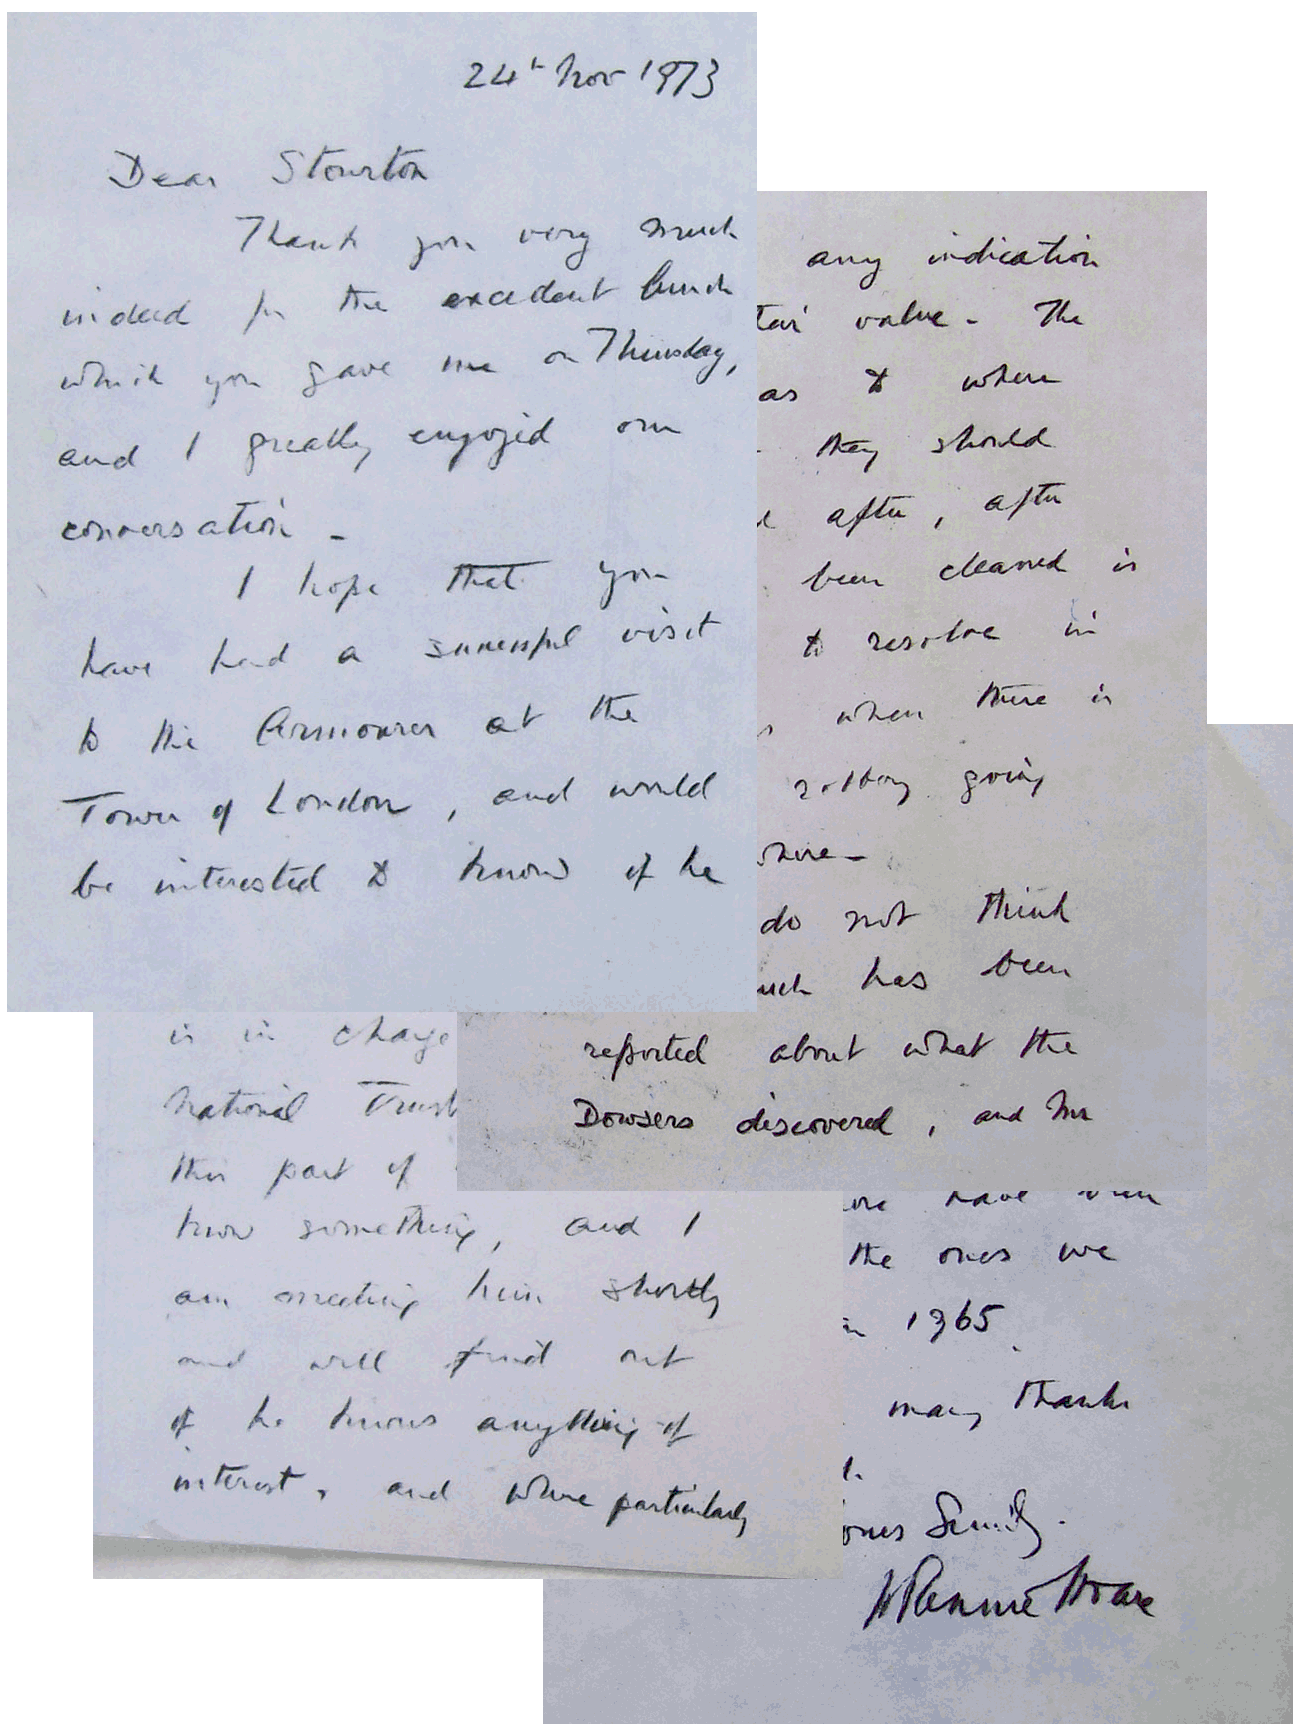 24th Nov 1973
Dear Stourton
Thank you very much
indeed for the excellent lunch
which you gave me on Thursday,
and I greatly enjoyed our
conversation -
I hope that you
have had a successful visit
to the Armourer at the
Tower of London, and would
be interested to know if he
any indication
value - The
as to where
they should
after, after
been cleaned is
to resolve in
when there is
robbery going
do not think
has been
reported about what the
Dowsers discovered, and Mr
is in charge
National Trust
this part of
know something, and I
am meeting him shortly
and will find out
if he knows anything of
interest, and where particularly
have been
the ones we
in 1965.
many thanks